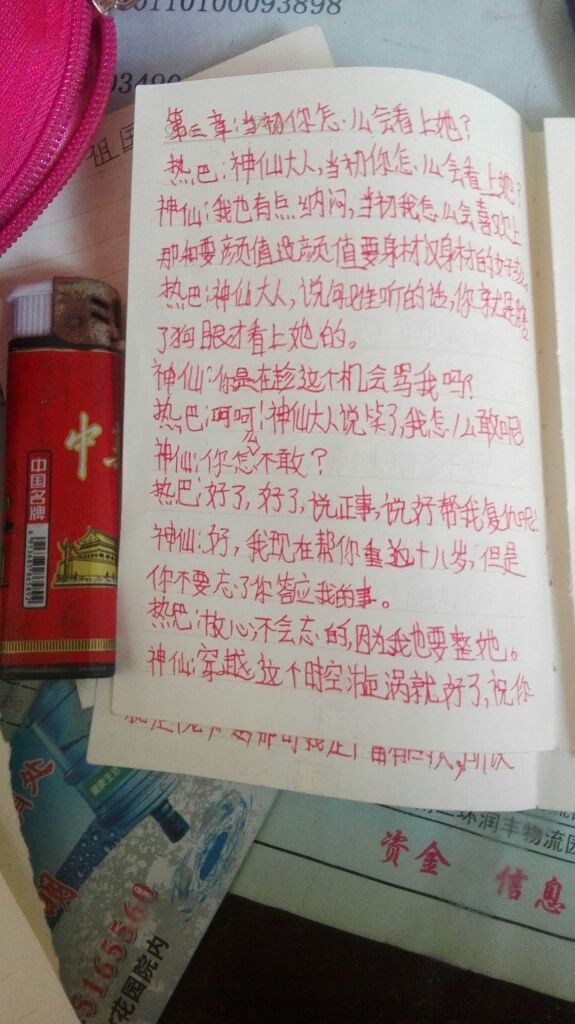 110100093898
03490
祖国
第三章:当初你怎么会看上她?
热巴:神仙大人,当初你怎么会看上她?
神仙:我也有点纳闷,当初我怎么会喜欢上
那种要颜值没颜值要身材没身材的女孩。
热巴:神仙大人,说句难听的话,你真就是瞎
了狗眼才看上她的。
神仙:你是在趁这个机会骂我吗?
热巴:呵呵!神仙大人说笑了,我怎么敢呢
神仙:你怎么不敢?
热巴:好了,好了,说正事,说好帮我复仇呢!
神仙:好,我现在帮你重返十八岁,但是
你不要忘了你答应我的事。
热巴:放心,不会忘的,因为我也要整她。
神仙:穿越这个时空漩涡就好了,祝你
中
中国名牌
健康生活
环润丰物流园
资金 信息
5165560
花园院内